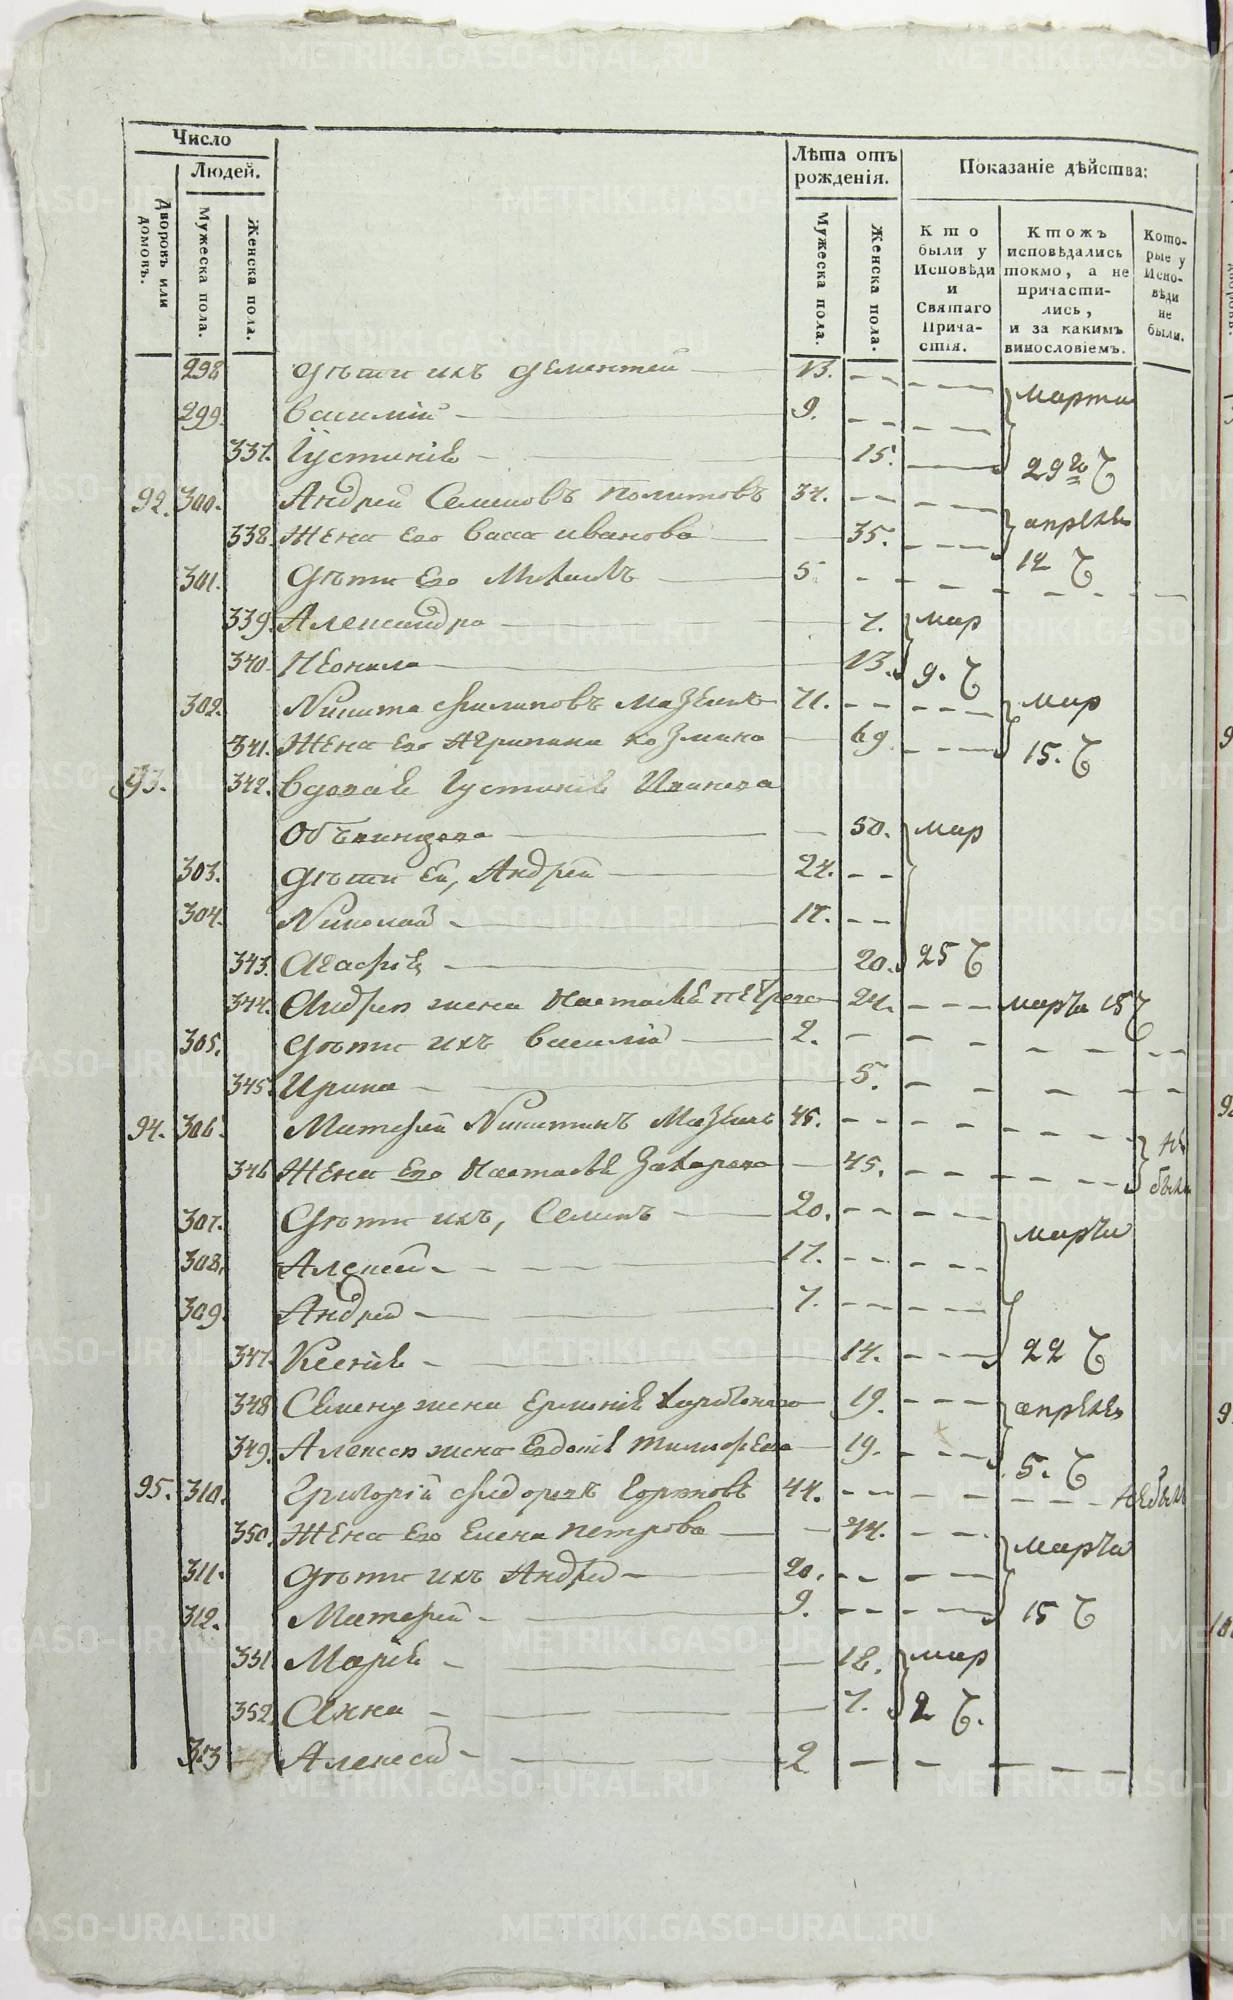 Число
Людей.
Дворовъ или домовъ.
Мужеска пола.
Женска пола.
Лѣта отъ рожденія.
Мужеска пола.
Женска пола.
Показаніе дѣйства:
Кто были у Исповѣди и Святаго Причастія.
Ктожъ исповѣдались токмо, а не причастились, и за какимъ винословіемъ.
Которые у Исповѣди не были.
298 Дѣти ихъ Дементей 13. марта
299. Василій 9.
337. Iустинія 15. 29го Ч
92. 300. Андрей Семеновъ Политовъ 34. апрѣля
338. Жена Его Васа Иванова 35. 12 Ч
301. Дѣти Его Михаилъ 5
339. Александра 7. мар
340. Неонила 13. 9. Ч
302. Никита Филиповъ 71. мар
341. Жена Его Агрипина Козмина 69 15. Ч
93. 342. Вдова Iустинія Иванова
50. мар
303. Дѣти Ей, Андрей 24.
304. Николай 17.
343. Агафія 20. 25 Ч
344. Андрея жена Настасья Петрова 24. марта 15 Ч
305. Дѣти ихъ Василій 2.
345. Ирина 5.
94. 306. Матфей Никитинъ 45. не
346 Жена Его Настасья Захарова 45. были
307. Дѣти ихъ, Семенъ 20. марта
308. Алексей 17.
309. Андрей 7.
347. Ксенія 14. 22 Ч
348 Семена жена Ермонія 19. апрѣля
349. Алексея жена Евдокія Тимофеева 19. 5. Ч
95. 310. Григорій Федоровъ 44. не былъ
350. Жена Его Елена Петрова 44. марта
311. Дѣти ихъ Андрей 20.
312. Матфей 9. 15 Ч
351 Марія 18. мар
352. Анна 7. 2 Ч.
313 Алексей 2
METRIKI.GASO-URAL.RU